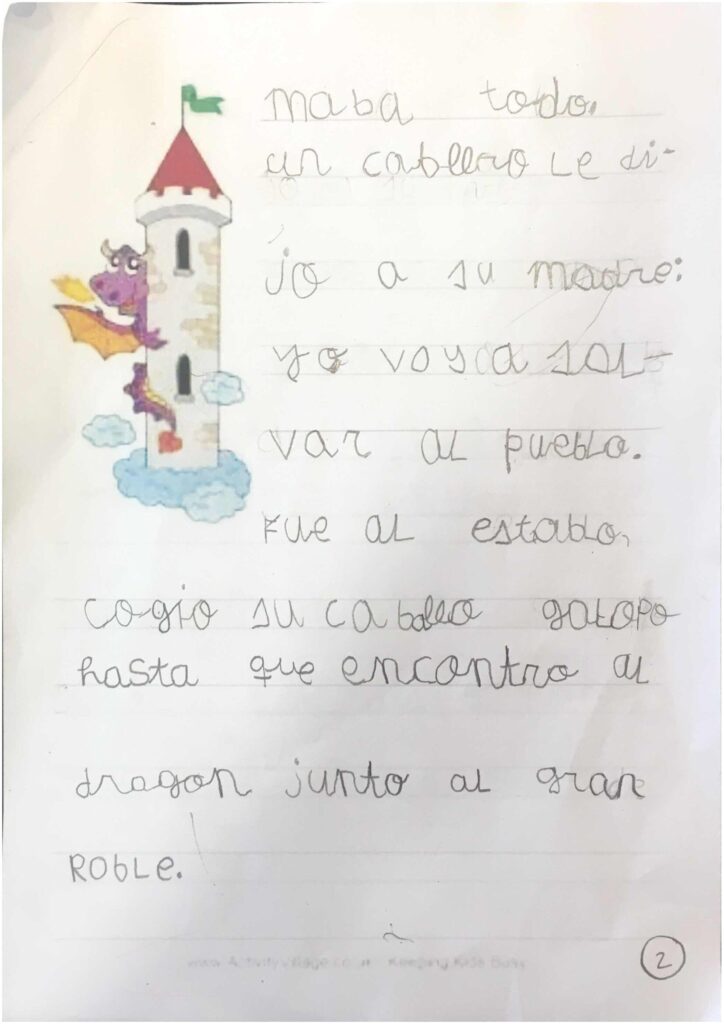 maba todo.
un cabllero le di-
jo a su madre:
yo voy a sal-
var al pueblo.
Fue al establo,
cogio su caballo galopo
hasta que encontro al
dragon junto al gran
Roble.
www.ActivityVillage.co.uk Keeping Kids Busy
2